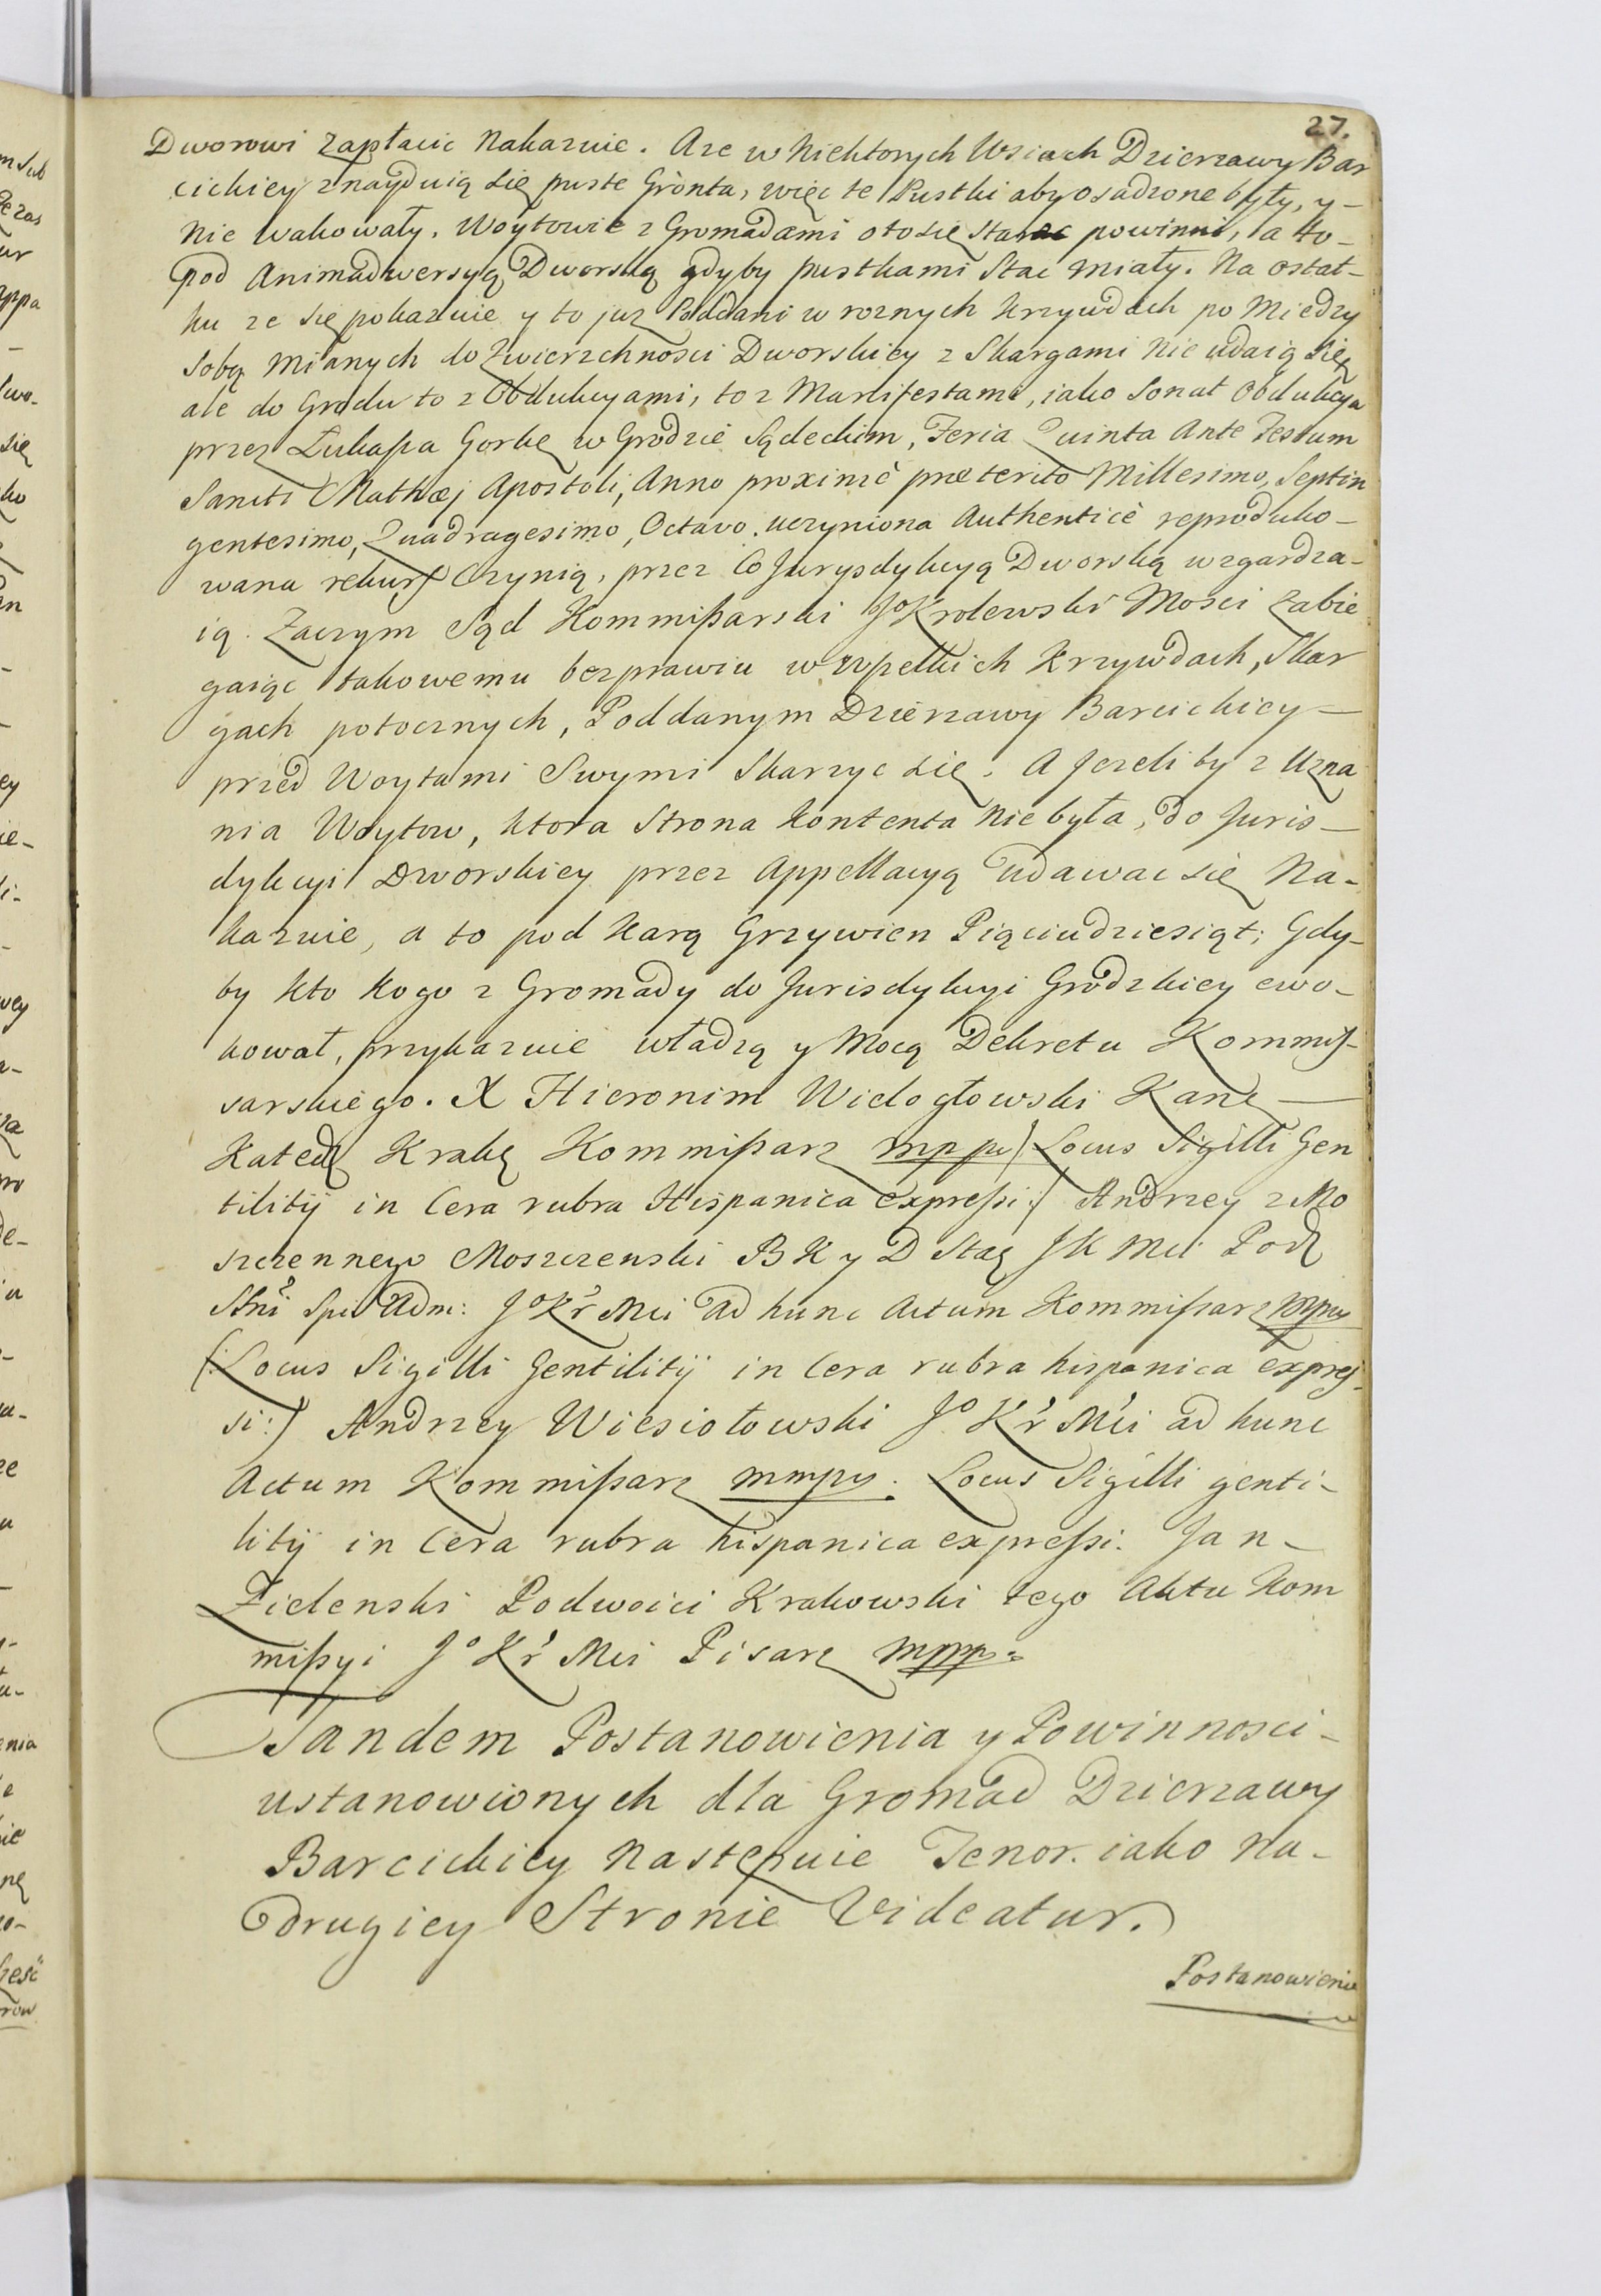 27.
Dworowi zapłacic Nakazuie. Aze w Niektorych Wsiach Dzierzawy Bar
cickiey znayduią się puste Gronta, więc te Pustki aby osadzone były, y-
nie wakowały. Woytowie z Gromadami oto się starac powinni, a to-
pod Animadwersyą Dworską gdyby pustkami Stac miały. Na ostat-
ku ze się pokazuie y to juz Poddani w roznych krzywdach po Miedzy
sobą mianych do Zwierzchnosci Dworskiey z Skargami Nie udaią się
ale do Grodu to z Obdukcyami, to z Manifestami, iako Sonat Obdukcya
przez Łukaszа Gorkę w Grodzie Sądeckim, Feria Quinta Ante Festum
Sancti Mathæj Apostoli, Anno proximè præterito Millesimo, Septin
gentesimo, Quadragesimo, Octavo. uczyniona Authenticè reproduko-
wana rekurs Czynią, przez Co Jurysdykcyą Dworską wzgardza-
ią. Zaczym Sąd Kommißarski Jo Krolewski Mosci zabie
gaiąc takowemu bezprawiu wszpelkich Krzywdach, Skar
gach potocznych, Poddanym Dzierzawy Barcickiey-
przed Woytami Swymi Skarzyc się. A Jezeli by z Uzna
nia Woytow, ktora Strona kontenta Nie była, do Juris-
dykcyi Dworskiey przez Appellacyą udawac się Na-
kazuie, a to pod karą Grzywien Piąciudziesiąt; Gdy-
by kto kogo z Gromady do Jurisdykcyi Grodzkiey ewo-
kował, przykazuie władzą y Mocą Dekretu Kommis-
sarskiego. X Hieronim Wielogłowski Kanę
Kated Krakę Kommißarz mppr) Locus Sigilli Gen
tilitij in Cera rubra Hispanica expreßi:) Andrzey z Mo
szczennego Moszczenski B K y D Staę J K Mci Podę
Stni Spi Adm: Jo Kr Mci Ad hunc Actum Kommißarz mppr
(:Locus Sigilli Gentilitij in Cera rubra hispanica expres-
si:) Andrzey Wiesiołowski Jo Kr Mci ad hunc
Actum Kommißarz mmpr. Locus Sigilli genti-
litij in Cera rubra hispanica expreßi: Jan-
Zielenski Podwoici Krakowski tego Aktu Kom
mißyi Jo Kr Mci Pisarz mppr
Tandem Postanowienia y Powinnosci-
ustanowionych dla Gromad Dzierzawy
Barcickiey Nastepuie Tenor. iako na-
drugiey Stronie Videatur.
Postanowienie